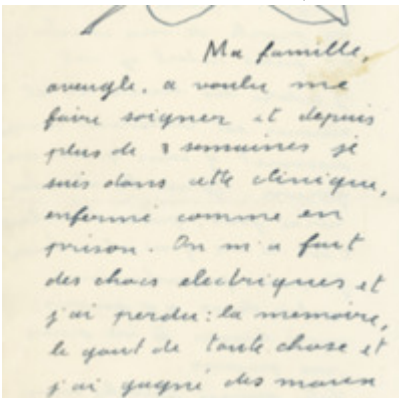 Ma famille,
aveugle, a voulu me
faire soigner et depuis
plus de 3 semaines je
suis dans cette clinique,
enfermé comme en
prison. On m'a fait
des chocs electriques et
j'ai perdu: la memoire,
le gout de toute chose et
j'ai gagné des maux